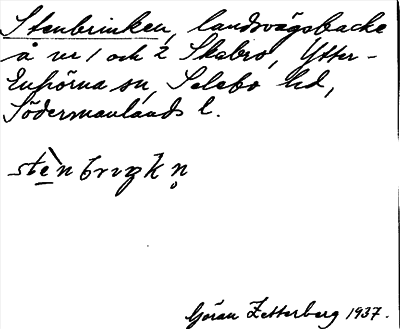 Stenbrinken, landsvägsbacke
å nr 1 och 2 Skabro, Ytter-
Enhörna sn, Selebo hd,
Södermanlands l.
stè̠nbrıŋkn̥
Göran Zetterberg 1937.